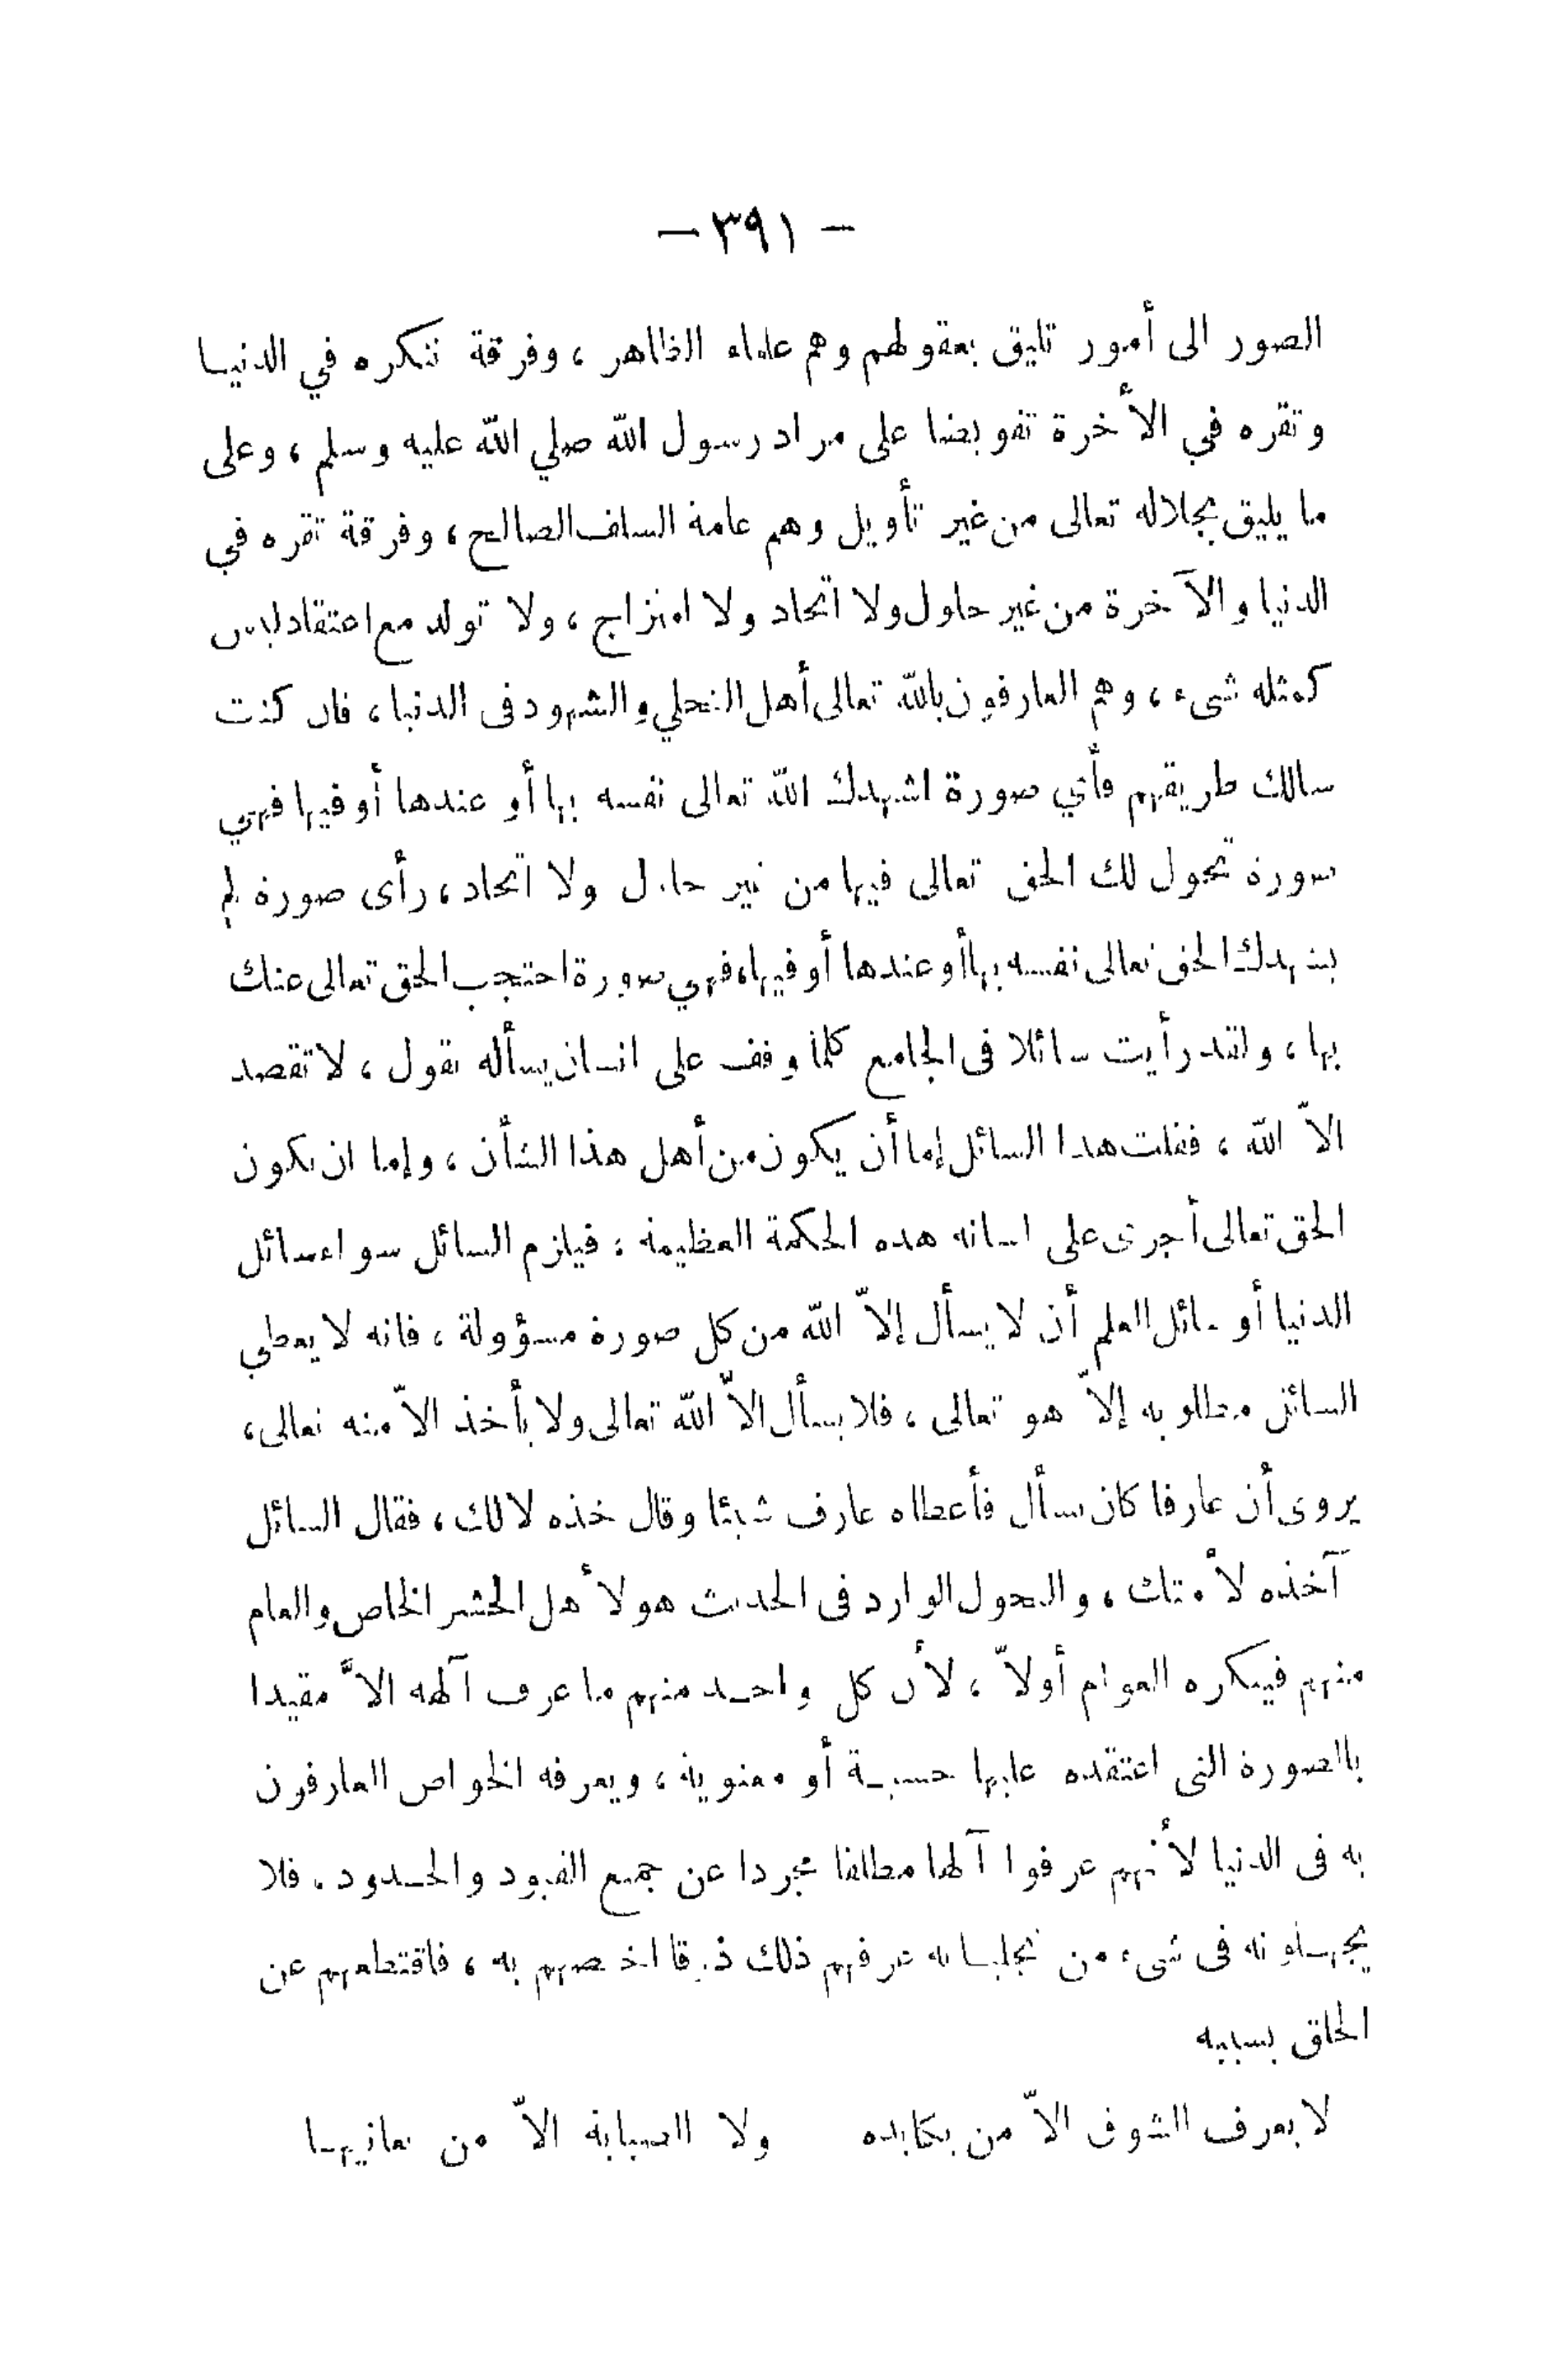 — ٣٩١ —
الصور الى أمور تليق بعقولهم وهم علماء الظاهر ، وفرقة تنكره في الدنيا
وتقره في الأخرة تفويضا على مراد رسول الله صلي الله عليه وسلم ، وعلى
ما يليق بجلاله تعالى من غير تأويل وهم عامة السلف الصالح ، وفرقة تقره في
الدنيا والآخرة من غير حلول ولا اتحاد ولا امتزاج ، ولا تولد مع اعتقاد ليس
كمثله شىء ، وهم العارفون بالله تعالى أهل التجلي والشهود فى الدنيا ، فان كنت
سالك طريقهم فأي صورة اشهدك الله تعالى نفسه بها أو عندها أو فيها فهي
صورة تحول لك الحق تعالى فيها من غير حلول ولا اتحاد ، وأى صورة لم
يشهدك الحق تعالى نفسه بها أو عندها أو فيها ، فهي صورة احتجب الحق تعالى عنك
بها ، ولقد رأيت سائلا فى الجامع كلما وقف على انسان يسأله يقول ، لا تقصد
الاّ الله ، فقلت هذا السائل إما أن يكون من أهل هذا الشأن ، وإما ان يكون
الحق تعالى أجرى على لسانه هذه الحكمة العظيمة ، فيلزم السائل سواء سائل
الدنيا أو سائل العلم أن لا يسأل إلاّ الله من كل صورة مسؤولة ، فانه لا يعطي
السائل مطلوبه إلاّ هو تعالى ، فلا يسأل الاّ الله تعالى ولا يأخذ الاّ منه تعالى ،
يروى أن عارفا كان يسأل فأعطاه عارف شيئا وقال خذه لا لك ، فقال السائل
آخذه لأمتك ، والتحول الوارد فى الحديث هو لأهل الحشر الخاص والعام
منهم فينكره العوام أولاّ ، لأن كل واحد منهم ما عرف آلهه الاّ مقيدا
بالصورة التى اعتقده عليها حسية أو معنوية ، ويعرفه الخواص العارفون
به فى الدنيا لأنهم عرفوا آلها مطلقا مجردا عن جميع القيود والحدود . فلا
يجهلونه فى شىء من تجلياته عرفهم ذلك ذوقا اخصهم به ، فاقتطعهم عن
الخلق بسببه
لا يعرف الشوق الاّ من يكابده ولا الصبابة الاّ من يعانيها